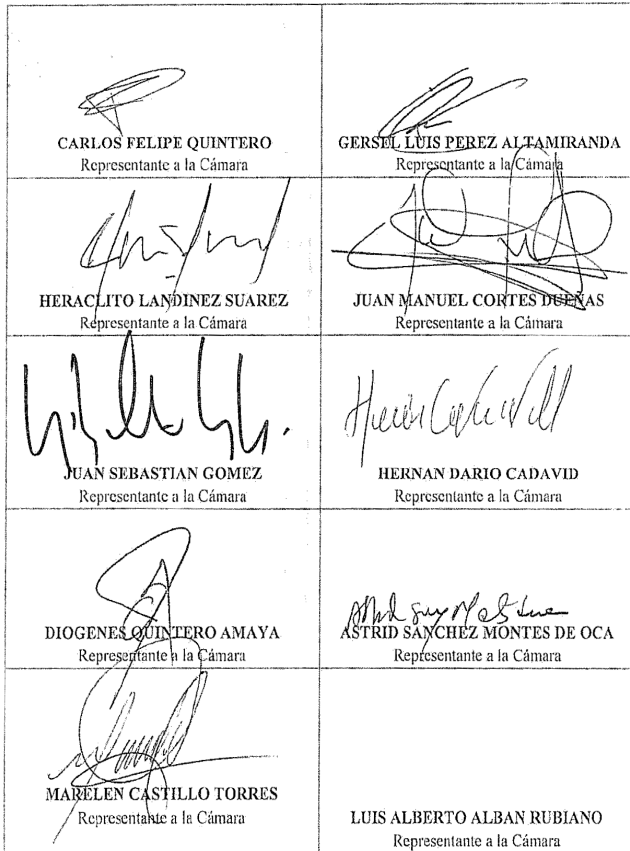 CARLOS FELIPE QUINTERO
Representante a la Cámara
GERSEL LUIS PEREZ ALTAMIRANDA
Representante a la Cámara
HERACLITO LANDINEZ SUAREZ
Representante a la Cámara
JUAN MANUEL CORTES DUEÑAS
Representante a la Cámara
JUAN SEBASTIAN GOMEZ
Representante a la Cámara
HERNAN DARIO CADAVID
Representante a la Cámara
DIOGENES QUINTERO AMAYA
Representante a la Cámara
ASTRID SANCHEZ MONTES DE OCA
Representante a la Cámara
MARELEN CASTILLO TORRES
Representante a la Cámara
LUIS ALBERTO ALBAN RUBIANO
Representante a la Cámara